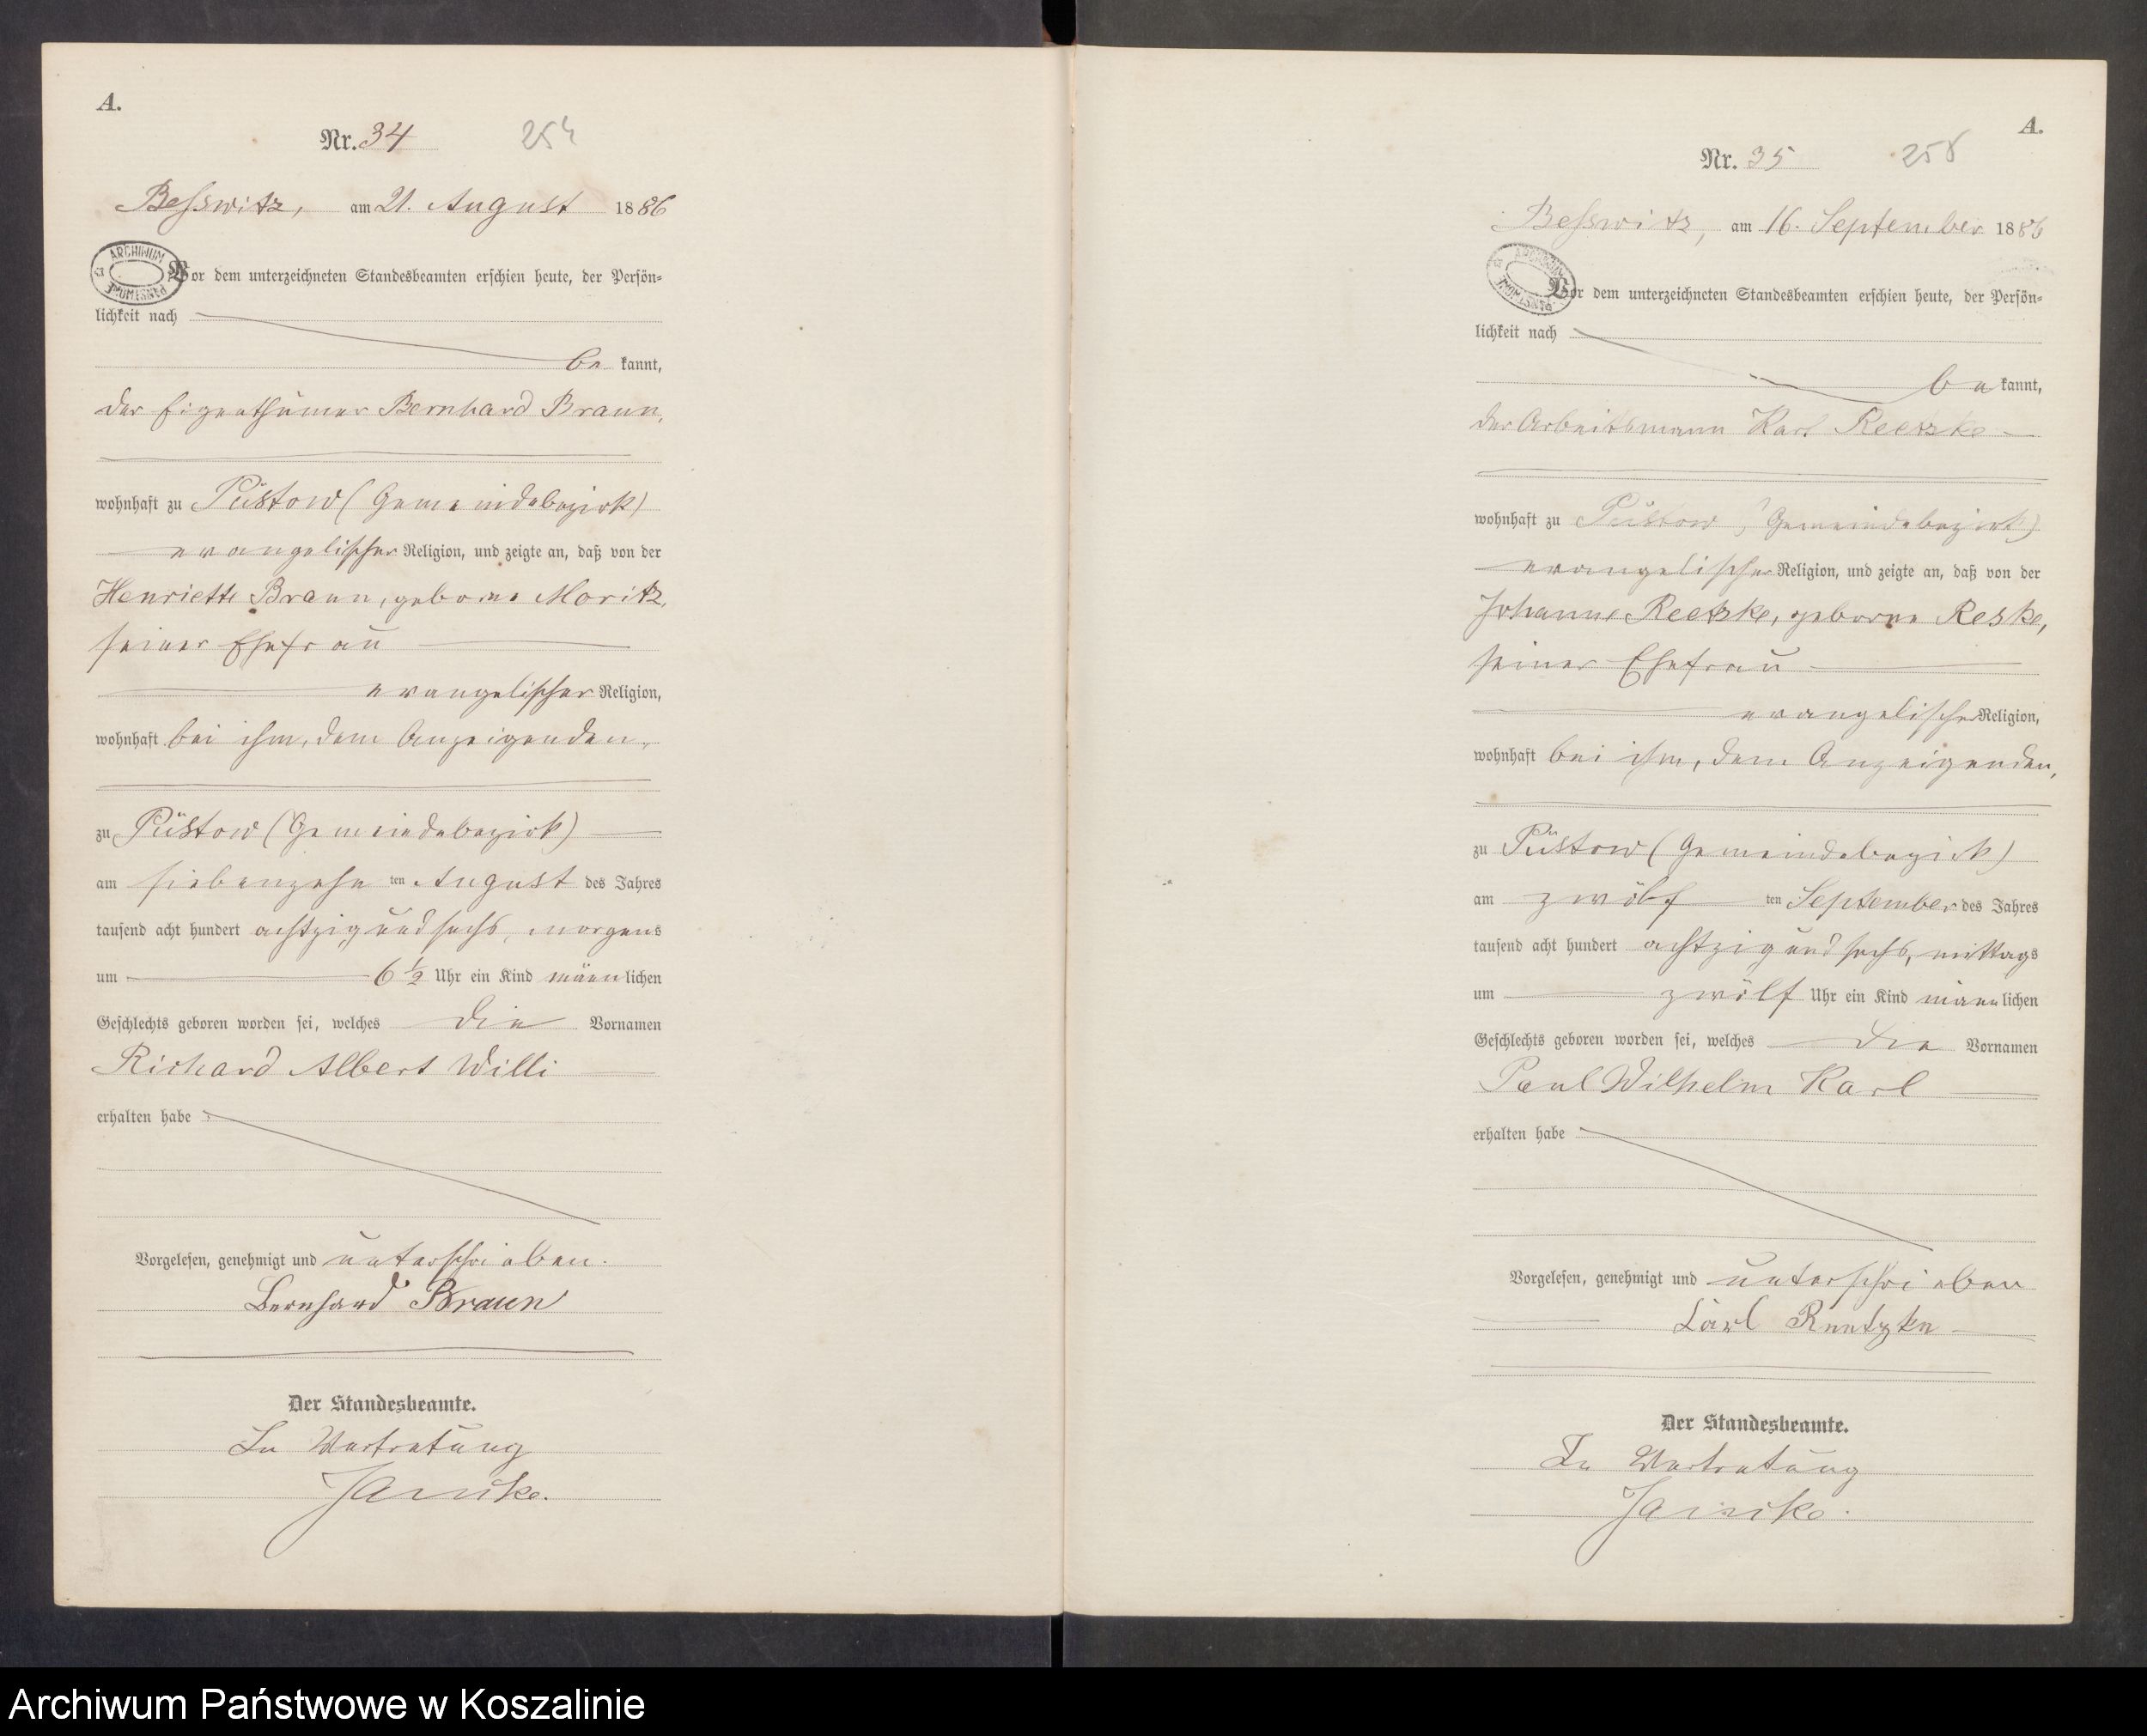 A.
Nr. 34 254
Besswitz, am 21. August 1886
ARCHIWUM PAŃSTWOWE
Vor dem unterzeichneten Standesbeamten erschien heute, der Persön=
lichkeit nach
be kannt,
der Eigenthümer Bernhard Braun,
wohnhaft zu Püstow (Gemeindebezirk)
evangelischer Religion, und zeigte an, daß von der
Henriette Braun, geborne Moritz,
seiner Ehefrau
evangelischer Religion,
wohnhaft bei ihm, dem Anzeigenden,
zu Püstow (Gemeindebezirk)
am siebenzehn ten August des Jahres
tausend acht hundert achtzig und sechs, morgens
um 6 1/2 Uhr ein Kind männlichen
Geschlechts geboren worden sei, welches die Vornamen
Richard Albert Willi
erhalten habe
Vorgelesen, genehmigt und unterschrieben.
Bernhard Braun
Der Standesbeamte.
In Vertretung
Janike.
A.
Nr. 35 255
Besswitz, am 16. September 1886
ARCHIWUM PAŃSTWOWE
Vor dem unterzeichneten Standesbeamten erschien heute, der Persön=
lichkeit nach
be kannt,
der Arbeitsmann Karl Reetzke
wohnhaft zu Püstow (Gemeindebezirk)
evangelischer Religion, und zeigte an, daß von der
Johanne Reetzke, geborne Reske,
seiner Ehefrau
evangelischer Religion,
wohnhaft bei ihm, dem Anzeigenden,
zu Püstow (Gemeindebezirk)
am zwölf ten September des Jahres
tausend acht hundert achtzig und sechs, mittags
um zwölf Uhr ein Kind männlichen
Geschlechts geboren worden sei, welches die Vornamen
Paul Wilhelm Karl
erhalten habe
Vorgelesen, genehmigt und unterschrieben
Carl Reetzke
Der Standesbeamte.
In Vertretung
Janike.
Archiwum Państwowe w Koszalinie